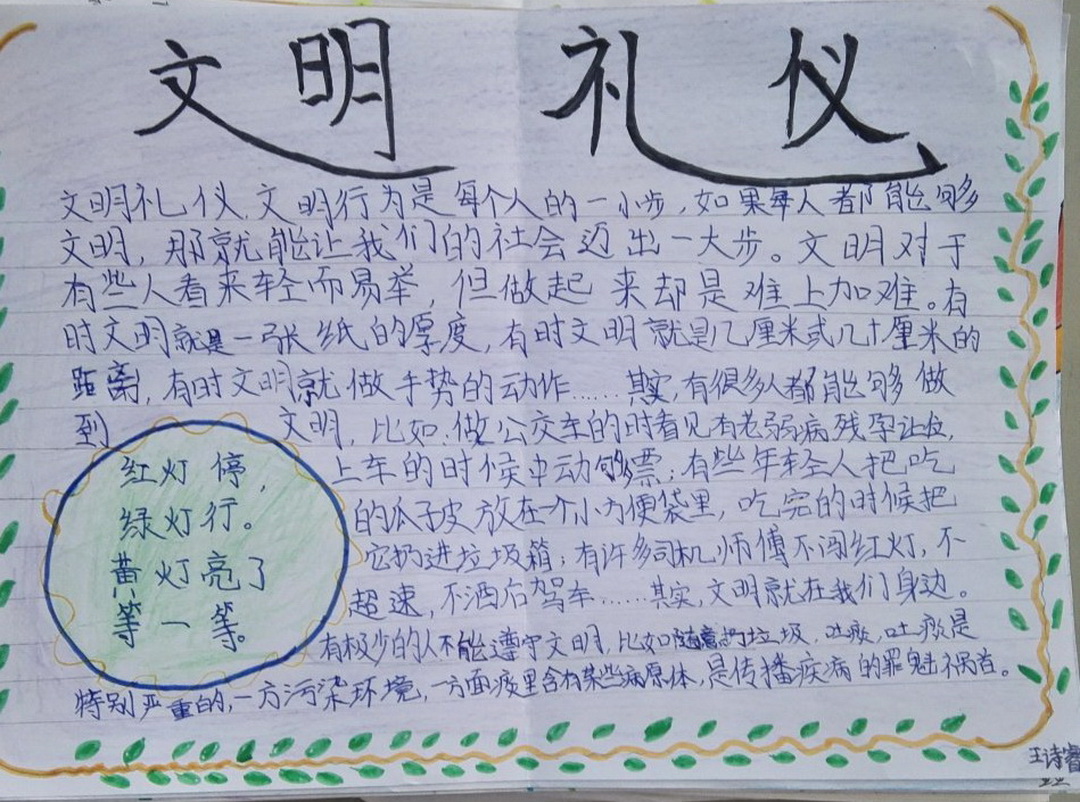 文明 礼仪
文明礼仪,文明行为是每个人的一小步,如果每人都能够
文明,那就能让我们的社会迈出一大步。文明对于
有些人看来轻而易举,但做起来却是难上加难。有
时文明就是一张纸的厚度,有时文明就是几厘米或几十厘米的
距离,有时文明就做手势的动作……其实,有很多人都能够做
到文明,比如:做公交车的时看见有老弱病残孕让位,
上车的时候主动够票;有些年轻人把吃
的瓜子皮放在个小方便袋里,吃完的时候把
它扔进垃圾箱;有许多司机师傅不闯红灯,不
超速,不酒后驾车……其实,文明就在我们身边。
有极少的人不能遵守文明,比如随意扔垃圾,吐痰,吐痰是
特别严重的,一方污染环境,一方面痰里含有某些病原体,是传播疾病的罪魁祸首。
红灯停,
绿灯行。
黄灯亮了
等一等。
王诗睿